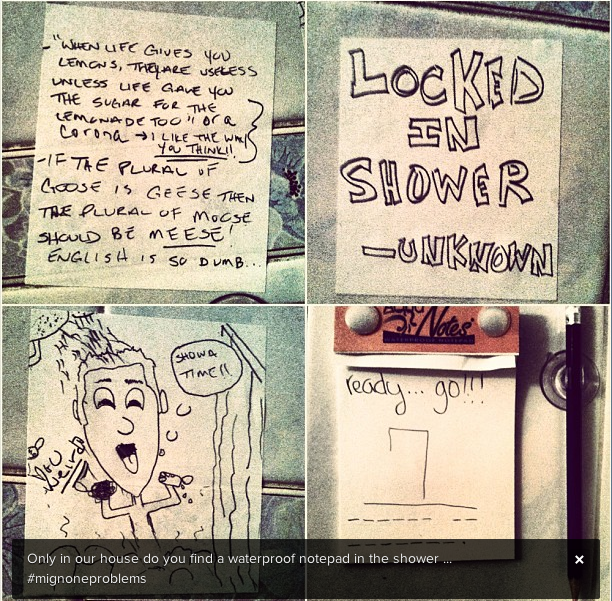 - "WHEN LIFE GIVES YOU
LEMONS, THEY ARE USELESS
UNLESS LIFE GAVE YOU
THE SUGAR FOR THE
LEMONADE TOO" or a
Corona → I LIKE THE WAY
YOU THINK!!
- IF THE PLURAL OF
GOOSE IS GEESE THEN
THE PLURAL OF MOOSE
SHOULD BE MEESE!
ENGLISH IS SO DUMB...
LOCKED
IN
SHOWER
—UNKNOWN
SHOWA
TIME!!
Weirdo
Notes
ready... go!!!
Only in our house do you find a waterproof notepad in the shower ...
#mignoneproblems